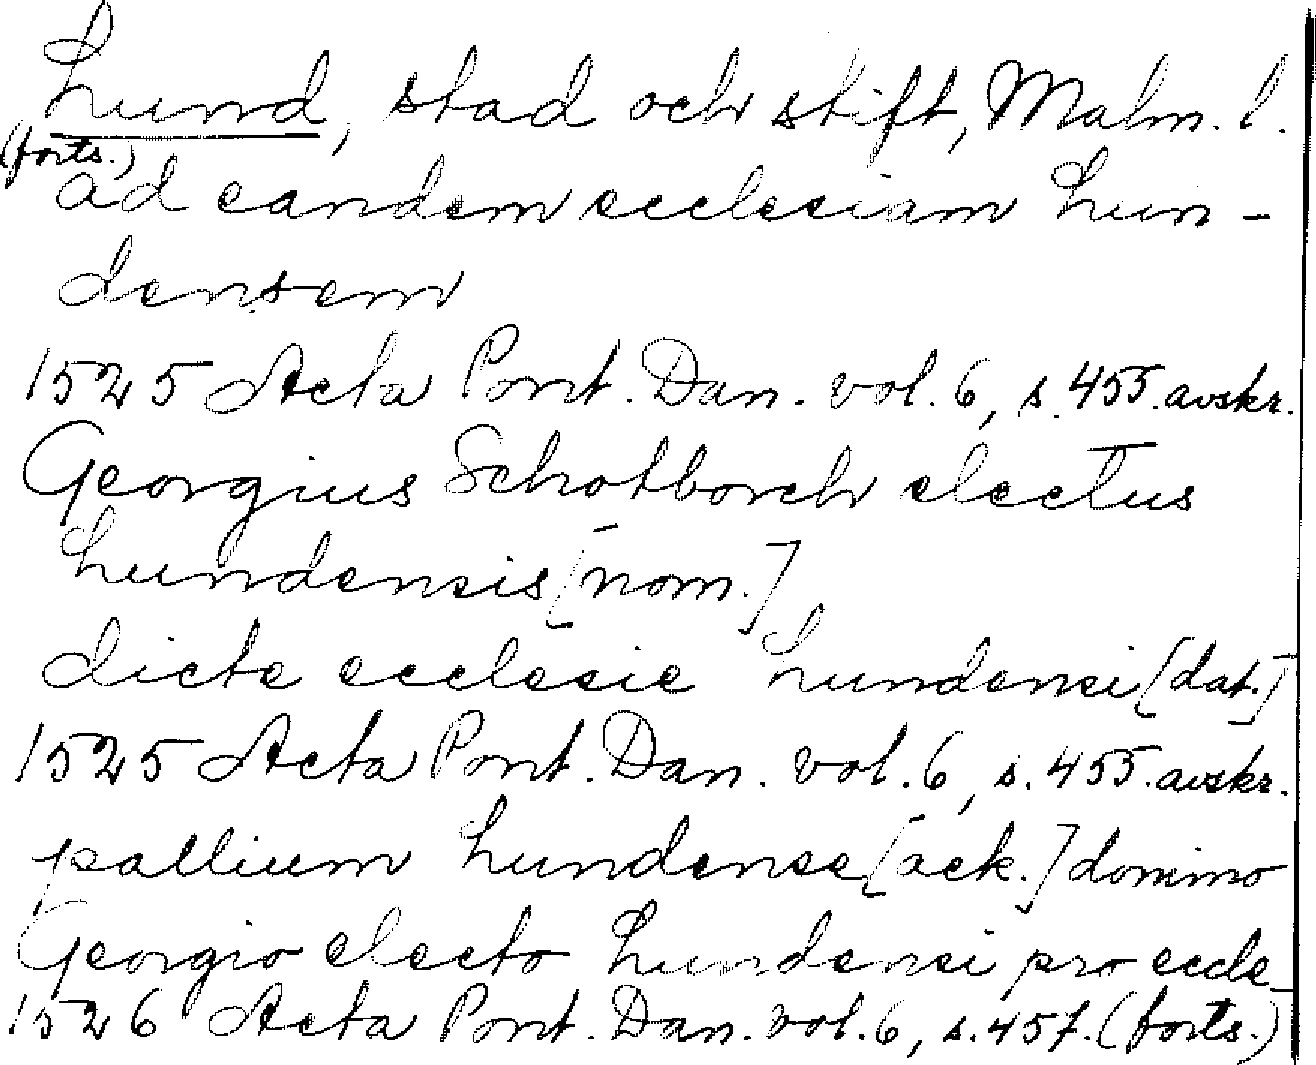 Lund, stad och stift, Malm. l.
(forts.)
ad eandem ecclesiam Lun-
densem
1525 Acta Pont. Dan. vol. 6, s. 455. avskr.
Georgius Schotborch electus
Lundensis [nom.]
dicte ecclesie Lundensi [dat.]
1525 Acta Pont. Dan. vol. 6, s. 455. avskr.
pallium Lundense [ack.] domino
Georgio electo Lundensi pro eccle-
1526 Acta Pont. Dan. vol. 6, s. 457. (forts.)